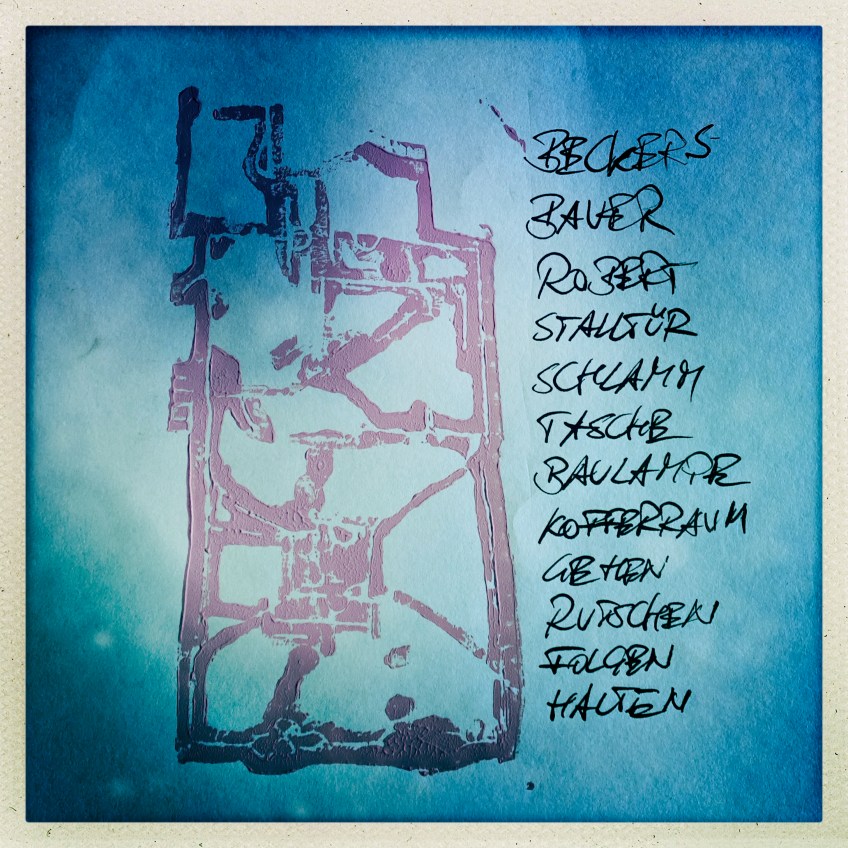 BECKERS
BAUER
ROBERT
STALLTÜR
SCHLAMM
TASCHE
BAULAMPE
KOFFERRAUM
GEHEN
RUTSCHEN
FOLGEN
HALTEN